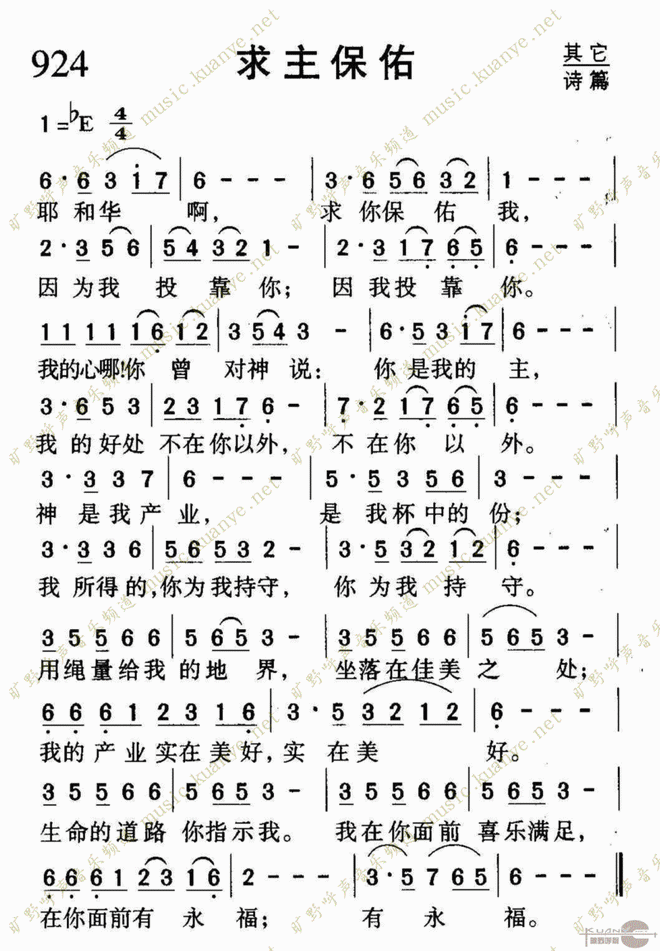 924 求主保佑 其它
诗篇
1=♭E 4/4
6·6 3 i 7 | 6 - - - | 3·6 5 6 3 2 | 1 - - - |
耶和华啊, 求你保佑我,
2·3 5 6 | 5 4 3 2 1 - | 2·3 1 7 6 5 | 6 - - - |
因为我投靠你; 因我投靠你。
1 1 1 1 1 6 1 2 | 3 5 4 3 - | 6·5 3 i 7 | 6 - - - |
我的心哪!你曾对神说: 你是我的主,
3·6 5 3 | 2 3 1 7 6 - | 7·2 1 7 6 5 | 6 - - - |
我的好处不在你以外, 不在你以外。
3·3 3 7 | 6 - - - | 5·5 3 5 6 | 3 - - - |
神是我产业, 是我杯中的份;
3·3 3 6 | 5 6 5 3 2 - | 3·3 2 1 2 | 6 - - - |
我所得的,你为我持守, 你为我持守。
3 5 5 6 6 | 5 6 5 3 - | 3 5 5 6 6 | 5 6 5 3 - |
用绳量给我的地界, 坐落在佳美之处;
6 6 6 1 2 3 1 6 | 3·5 3 2 1 2 | 6 - - - |
我的产业实在美好,实在美好。
3 5 5 6 6 | 5 6 5 3 - | 3 5 5 6 6 | 5 6 5 3 - |
生命的道路你指示我。 我在你面前喜乐满足,
6 6 6 1 2 3 1 6 | 2 - - - | 3·5 7 6 5 | 6 - - - ‖
在你面前有永福; 有永福。
旷野呼声音乐频道 music.kuanye.net